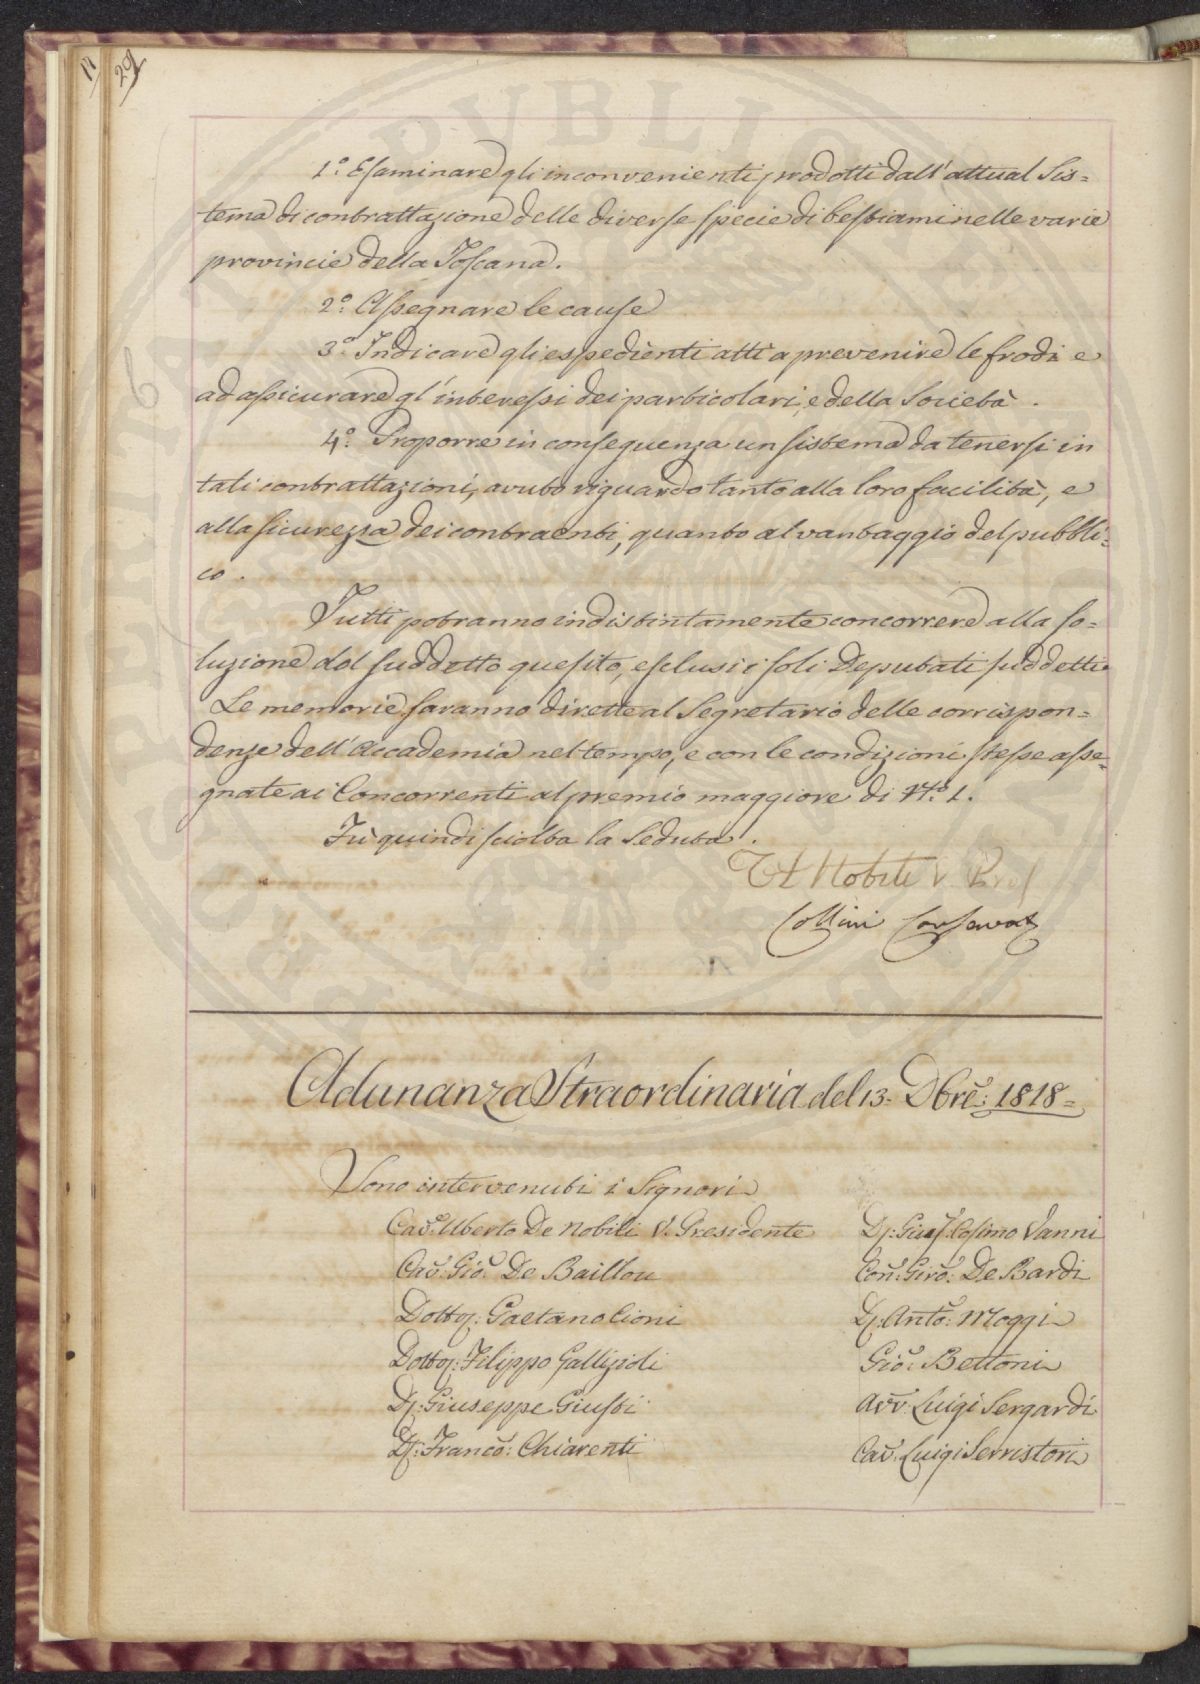 29
1.º Esaminare gli inconvenienti prodotti dall'attual Sis=
tema di contrattazione delle diverse specie di bestiami nelle varie
provincie della Toscana.
2.º Assegnare le cause
3.º Indicare gli espedienti atti a prevenire le frodi e
ad assicurare gl'interessi dei particolari, e della Società.
4.º Proporre in conseguenza un sistema da tenersi in
tali contrattazioni, avuto riguardo tanto alla loro facilità, e
alla sicurezza dei contraenti, quanto al vantaggio del pubbli=
co.
Tutti potranno indistintamente concorrere alla so=
luzione del suddetto quesito, esclusi i soli Deputati suddetti
Le memorie saranno dirette al Segretario delle corrispon=
denze dell'Accademia nel tempo, e con le condizioni stesse asse=
gnate ai Concorrenti al premio maggiore di N.º 1.
Fù quindi sciolta la Seduta.
Nobili V. Pres
Collini Conservat
Adunanza Straordinaria del 13. Dbrẽ: 1818=
Sono intervenuti i Signori
Cav. Uberto De Nobili V. Presidente
Cav. Gio. De Baillou
Dott: Gaetano Cioni
Dott: Filippo Gallizioli
D: Giuseppe Giusti
D: Franco: Chiarenti
D: Gius. Cosimo Vanni
Con: Giro: De Bardi
D: Anto: Moggi
Gio: Bettoni
Avv: Luigi Sergardi
Cav: Luigi Serristori